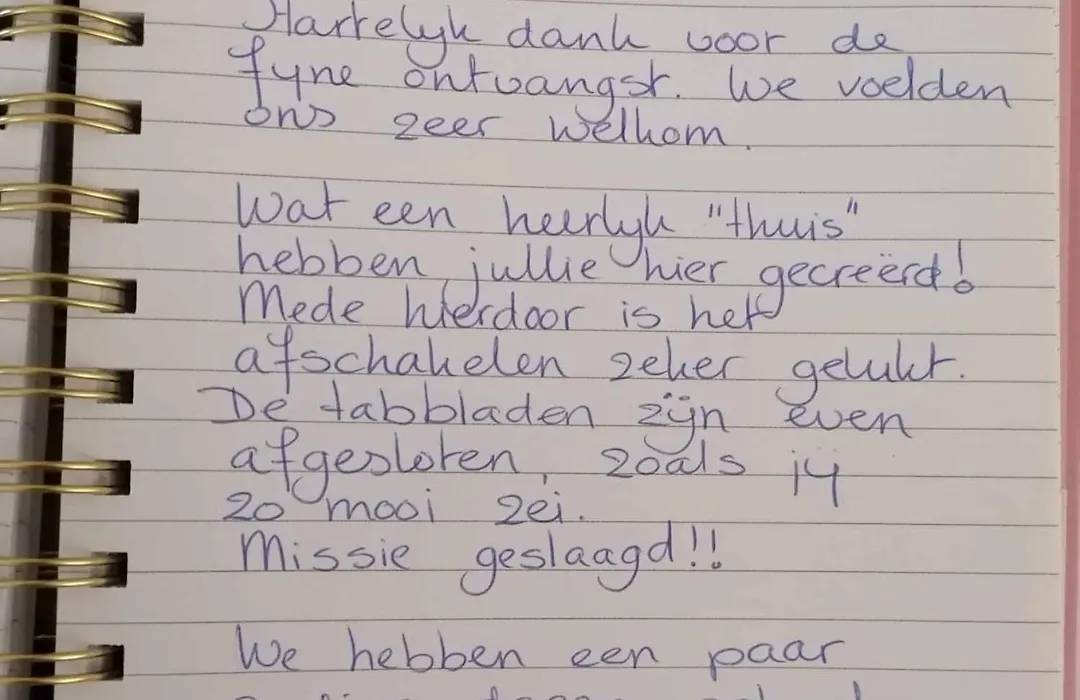 Hartelyk dank voor de
fyne ontvangst. We voelden
ons zeer welkom.
Wat een heerlyk "thuis"
hebben jullie hier gecreëerd!
Mede hierdoor is het
afschakelen zeker gelukt.
De tabbladen zijn even
afgesloten, zoals ij
zo mooi zei.
Missie geslaagd!!
We hebben een paar